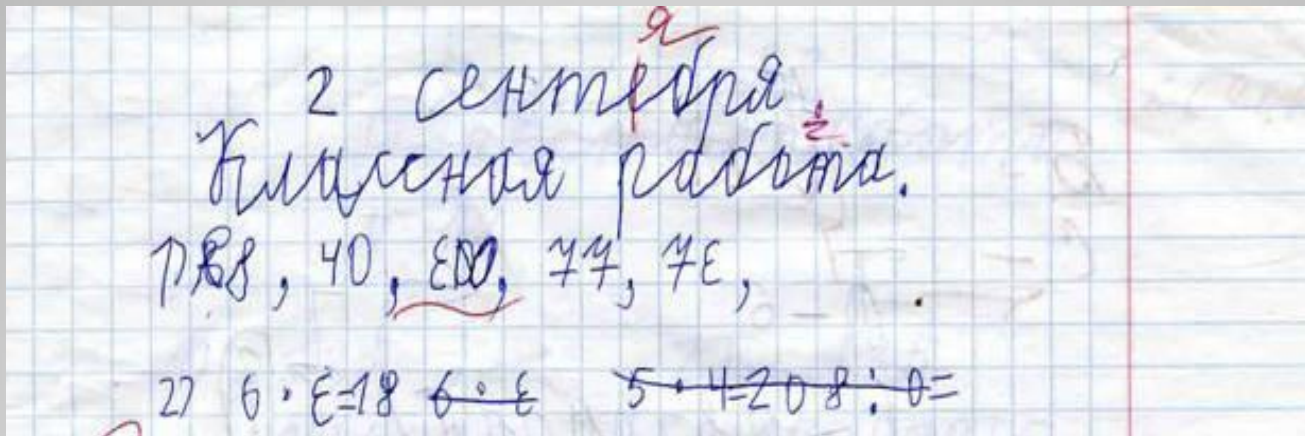 я
2 сентебря
Классная работа.
1) 88, 40, ƐDO, 77, 7Ɛ,
2) 6 · Ɛ=18 6 · Ɛ 5 · 4=20 8 : 0=